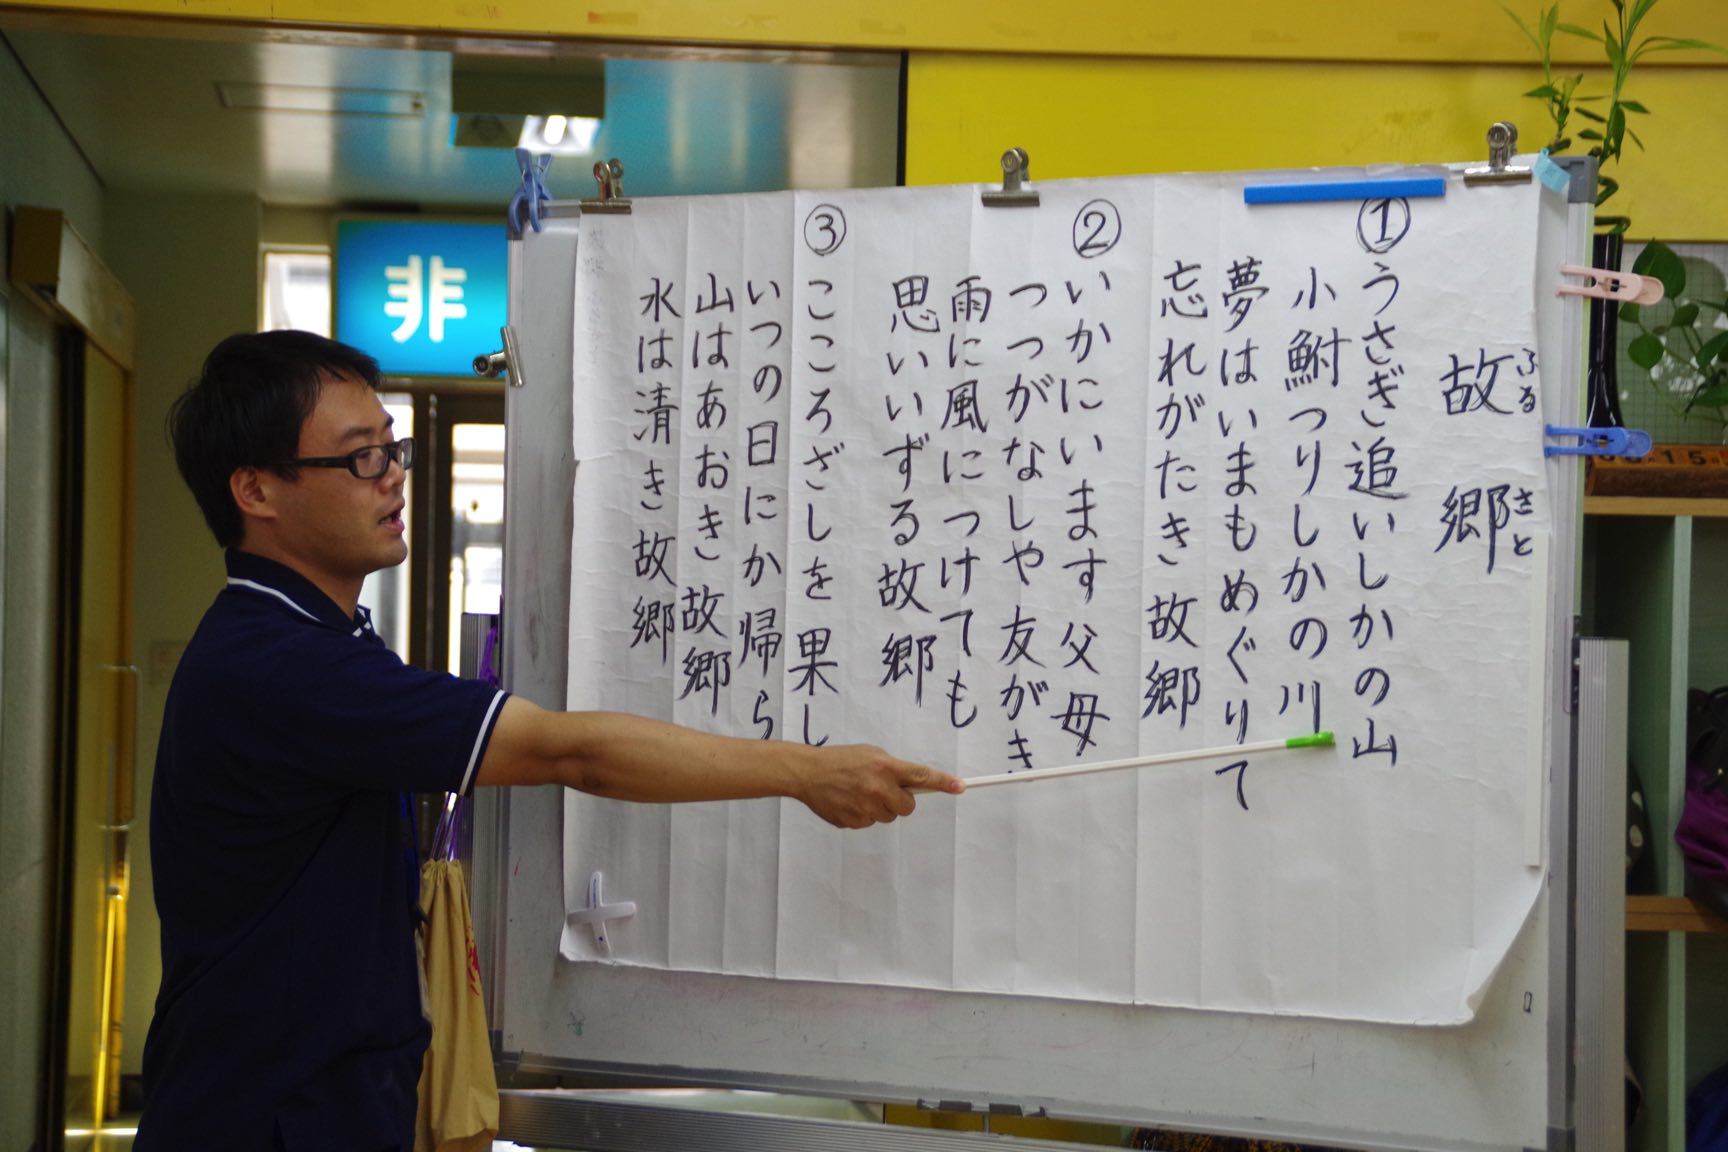 故郷
ふるさと
①
うさぎ追いしかの山
小鮒つりしかの川
夢はいまもめぐりて
忘れがたき故郷
②
いかにいます父母
つつがなしや友がき
雨に風につけても
思いいずる故郷
③
こころざしを果し
いつの日にか帰ら
山はあおき故郷
水は清き故郷
非